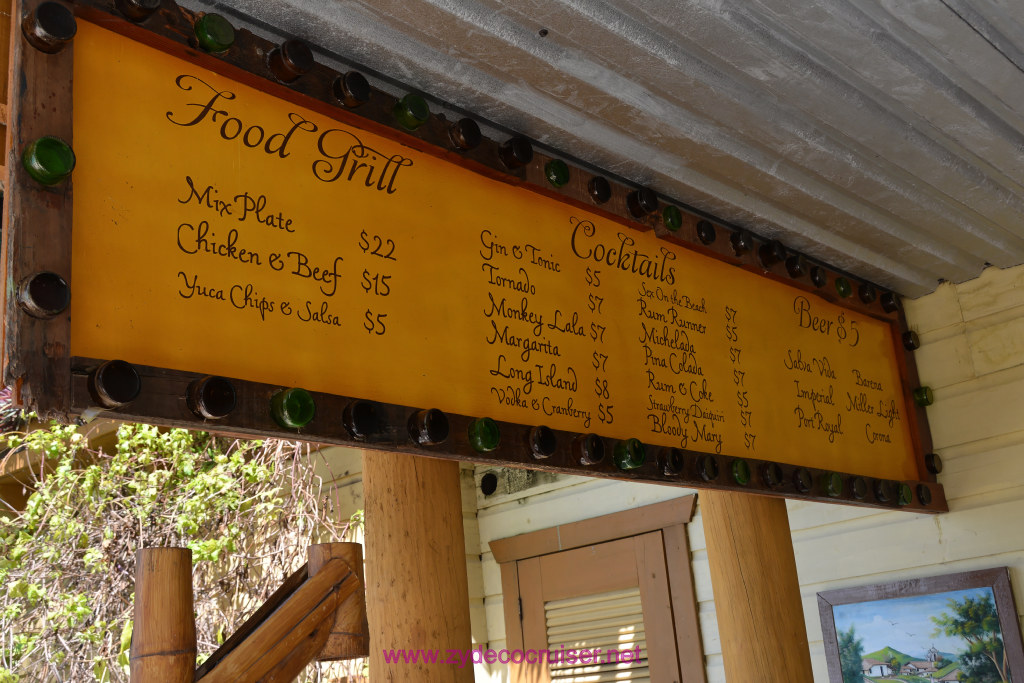 Food Grill
Mix Plate $22
Chicken & Beef $15
Yuca Chips & Salsa $5
Cocktails
Gin & Tonic $5
Tornado $7
Monkey Lala $7
Margarita $7
Long Island $8
Vodka & Cranberry $5
Sex On the Beach $7
Rum Runner $5
Michelada $7
Pina Colada $7
Rum & Coke $5
Strawberry Daiquiri $7
Bloody Mary $7
Beer $5
Salva Vida Barena
Imperial Miller Light
Port Royal Corona
www.zydecocruiser.net